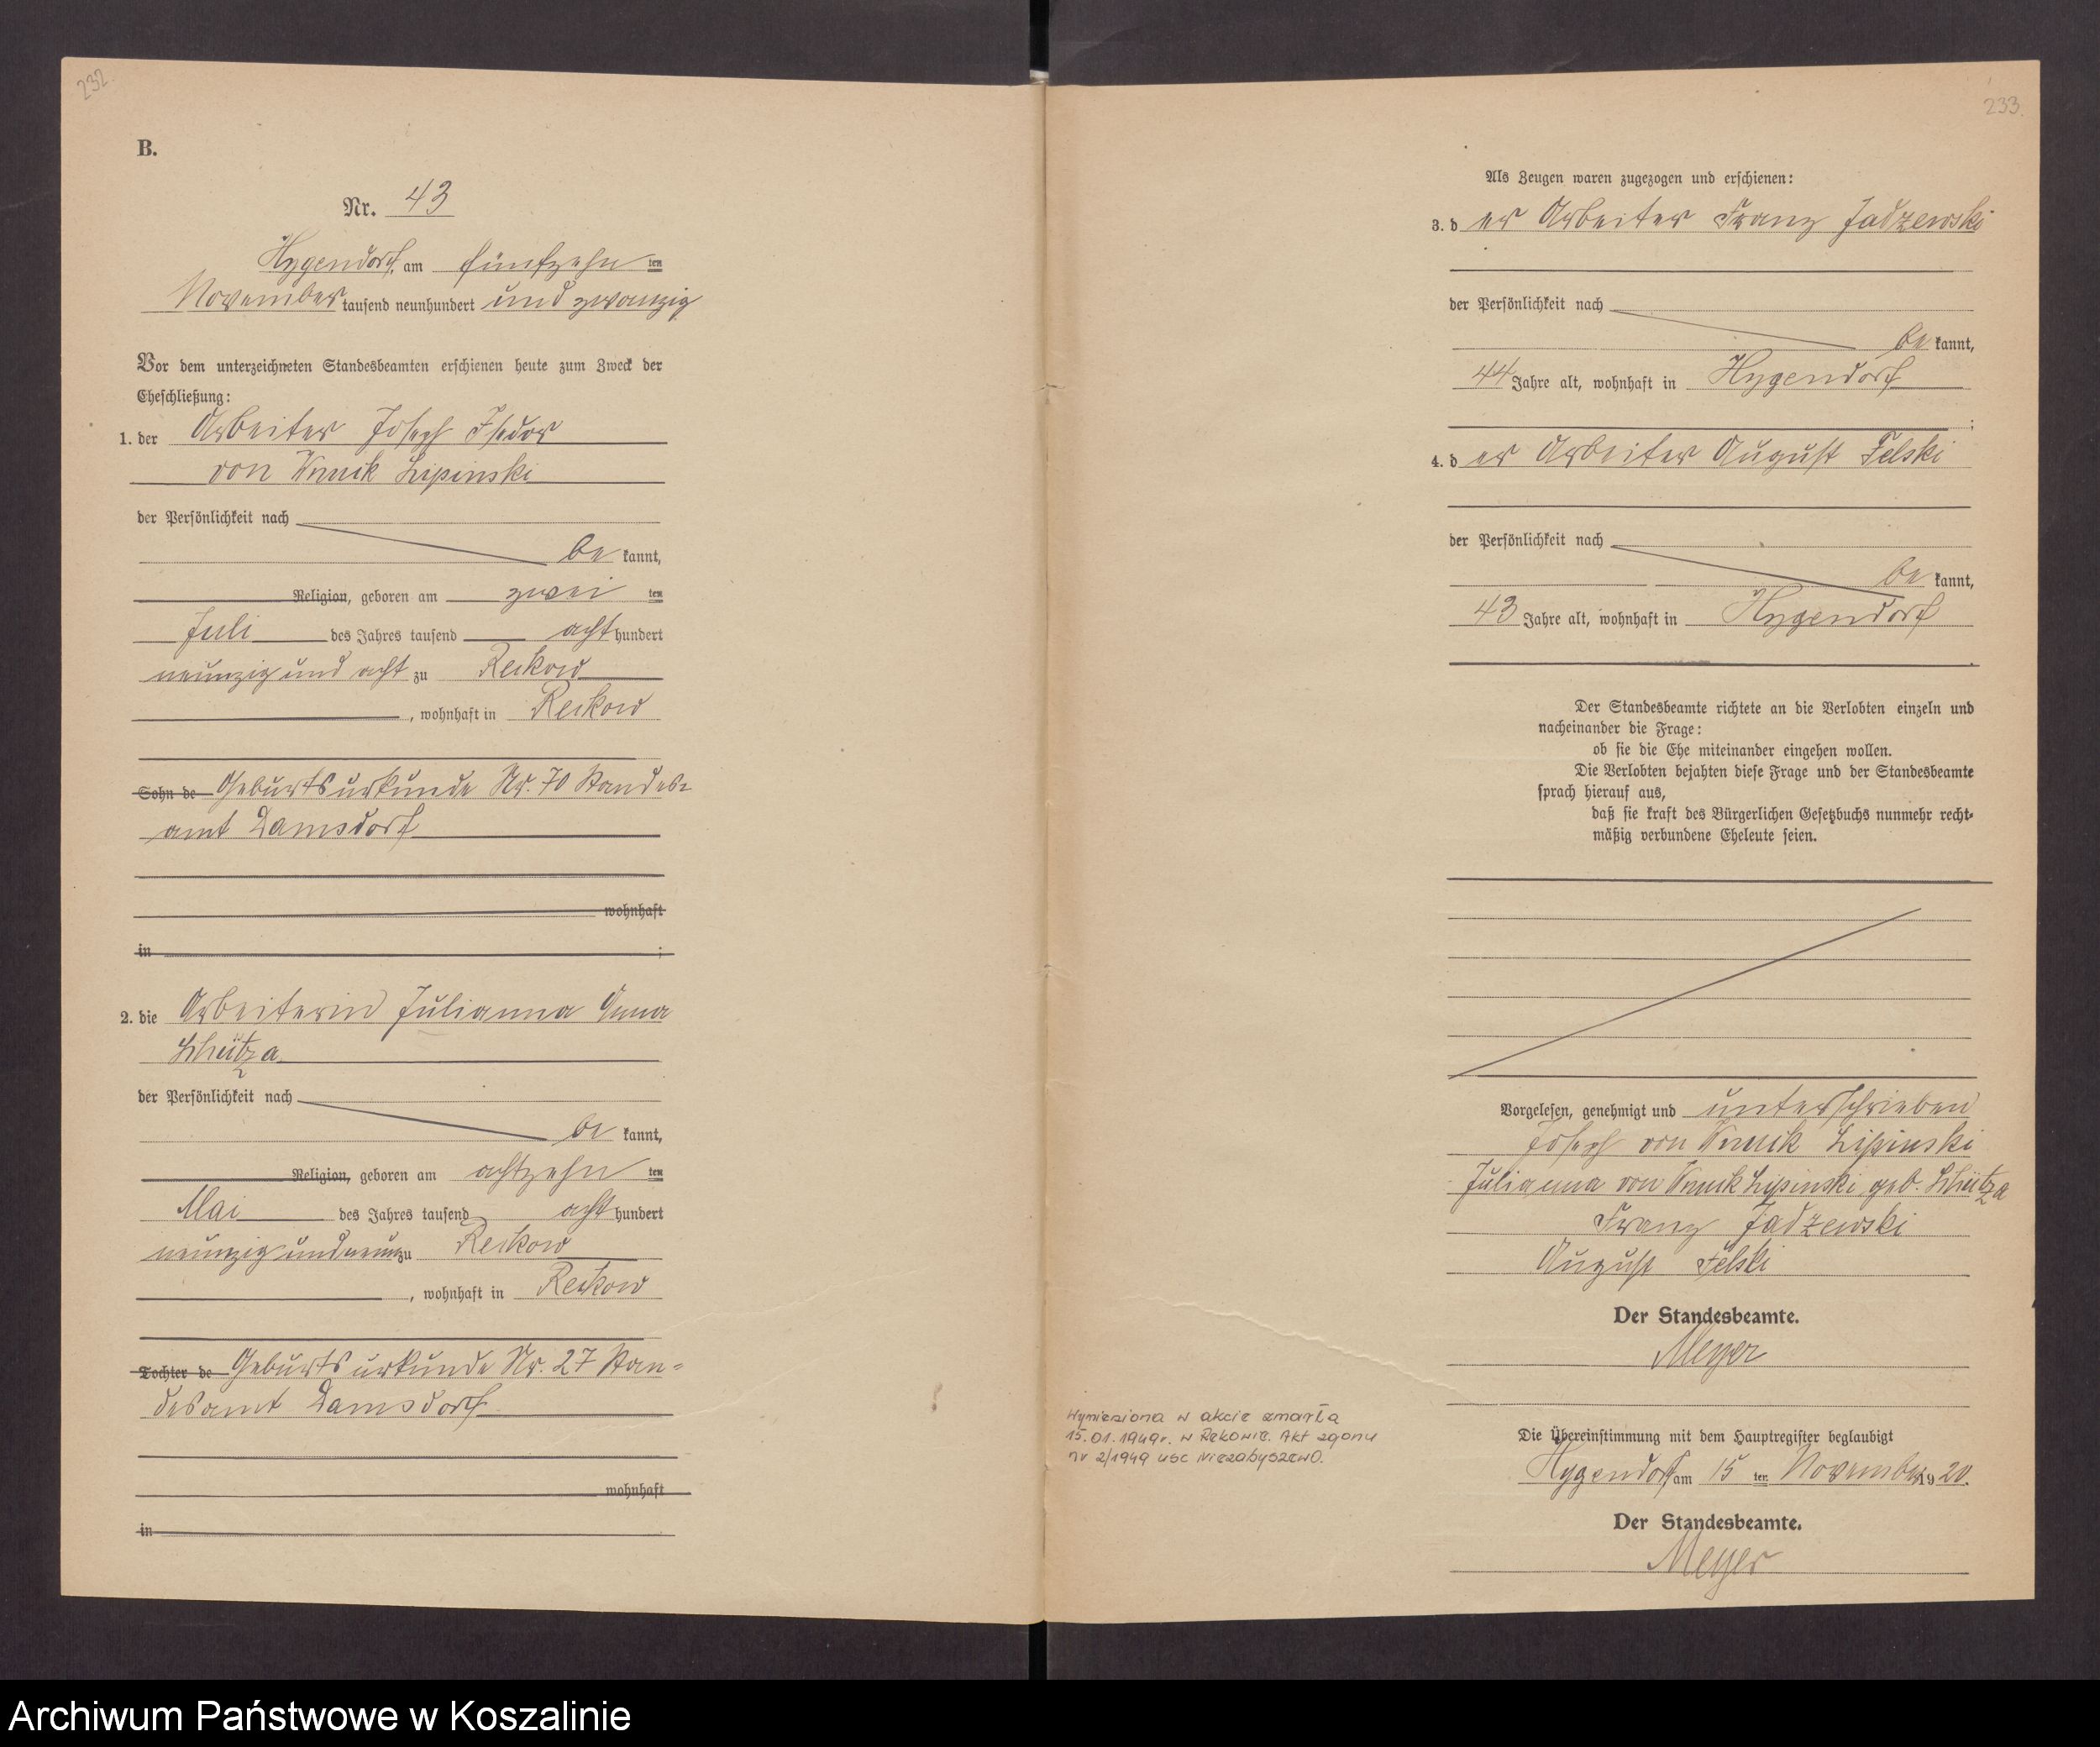 232
B.
Nr. 43
Hygendorf, am fünfzehn ten
November tausend neunhundert und zwanzig
Vor dem unterzeichneten Standesbeamten erschienen heute zum Zweck der
Eheschließung:
1. der Arbeiter Joseph Isidor
von Wnuck Lipinski
der Persönlichkeit nach
be kannt,
Religion, geboren am zwei ten
Juli des Jahres tausend acht hundert
neunzig und acht zu Reckow
, wohnhaft in Reckow
Sohn de Geburtsurkunde Nr. 70 Standes=
amt Damsdorf
wohnhaft
in ;
2. die Arbeiterin Julianna Anna
der Persönlichkeit nach
be kannt,
Religion, geboren am achtzehn ten
Mai des Jahres tausend acht hundert
neunzig und neun zu Reckow
, wohnhaft in Reckow
Tochter de Geburtsurkunde Nr. 27 Stan=
desamt Damsdorf
wohnhaft
in
233
Als Zeugen waren zugezogen und erschienen:
3. d er Arbeiter Franz Jadzewski
der Persönlichkeit nach
be kannt,
44 Jahre alt, wohnhaft in Hygendorf
;
4. d er Arbeiter August Felski
der Persönlichkeit nach
be kannt,
43 Jahre alt, wohnhaft in Hygendorf
Der Standesbeamte richtete an die Verlobten einzeln und
nacheinander die Frage:
ob sie die Ehe miteinander eingehen wollen.
Die Verlobten bejahten diese Frage und der Standesbeamte
sprach hierauf aus,
daß sie kraft des Bürgerlichen Gesetzbuchs nunmehr recht=
mäßig verbundene Eheleute seien.
Vorgelesen, genehmigt und unterschrieben
Joseph von Wnuck Lipinski
Julianna von Wnuck Lipinski geb.
Franz Jadzewski
August Felski
Der Standesbeamte.
Meyer
Wymieniona w akcie zmarła
15.01.1949r. w Rekowie. Akt zgonu
nr 2/1949 USC Niezabyszewo.
Die Übereinstimmung mit dem Hauptregister beglaubigt
Hygendorf, am 15 ten November 19 20.
Der Standesbeamte.
Meyer
Archiwum Państwowe w Koszalinie